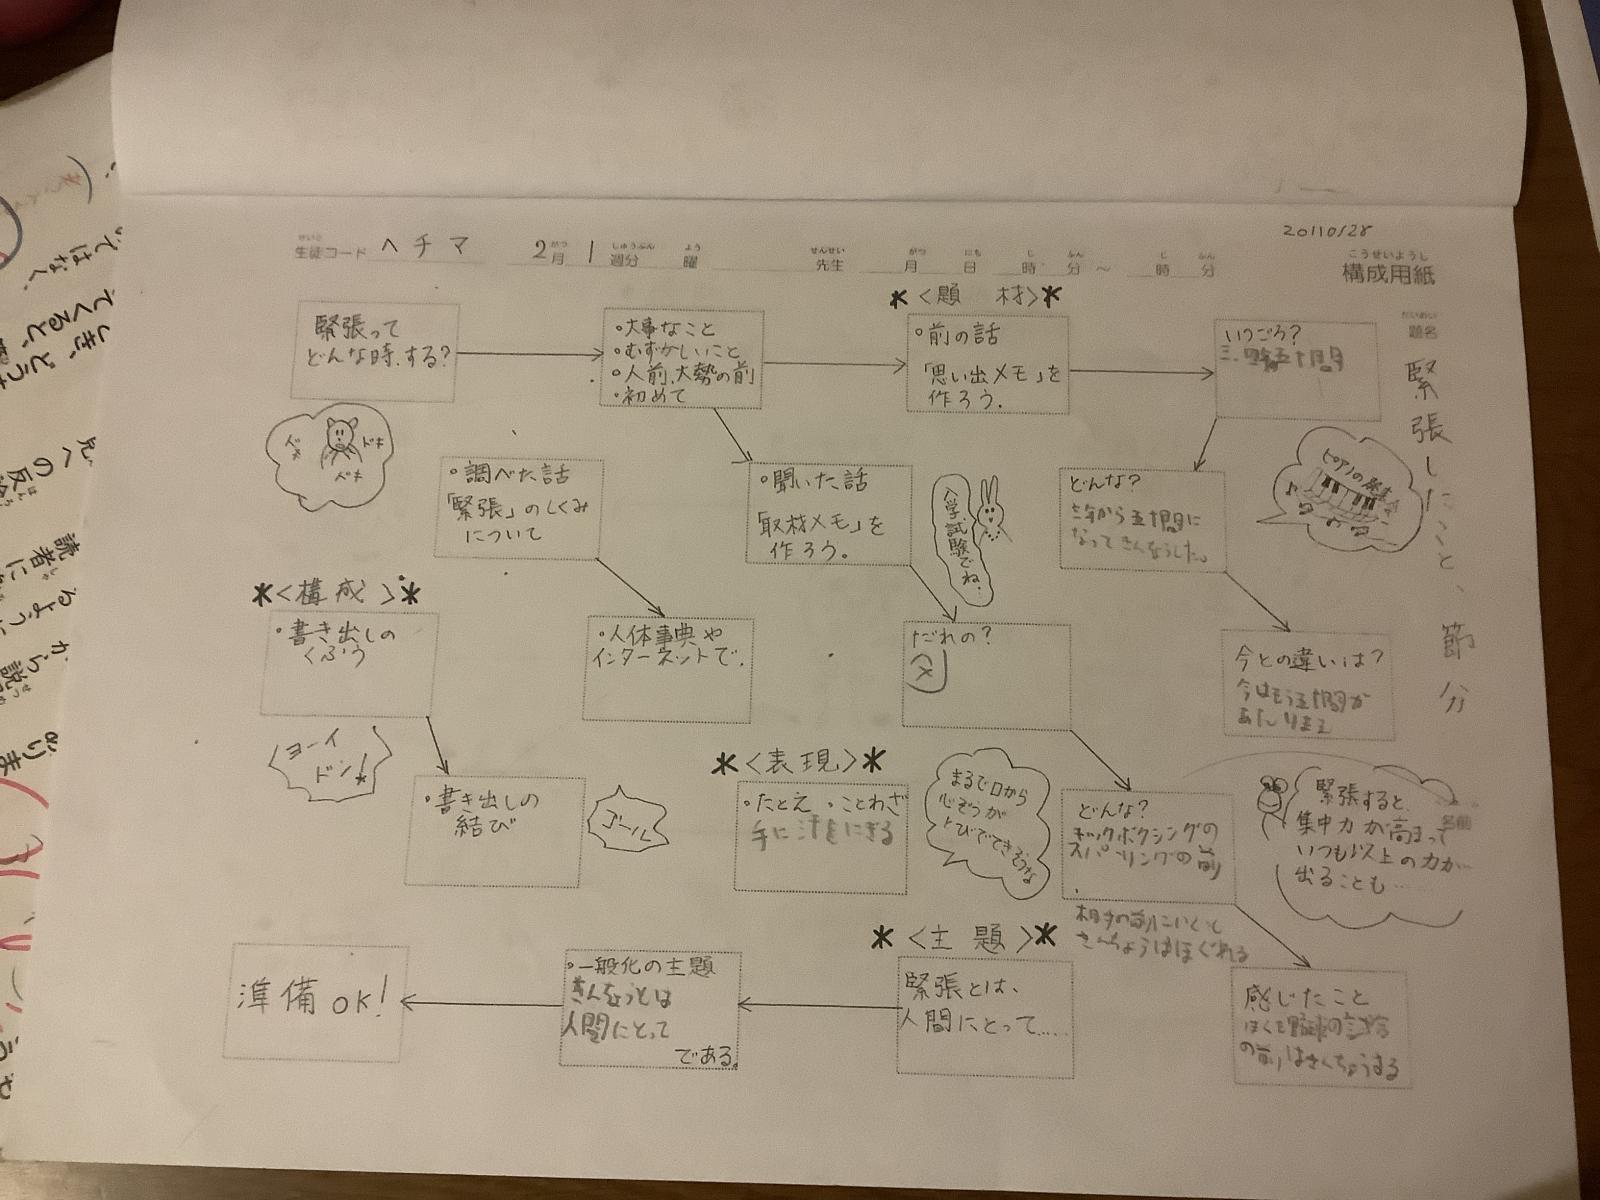 20110128
こうせいようし
構成用紙
せいと
生徒コード ヘチマ 2月 1週分 曜
先生 月 日 時 分 〜 時 分
だいめい
題名
緊張したこと、節分
名前
緊張って
どんな時、する?
ドキ
ドキ
・大事なこと
・むずかしいこと
・人前、大勢の前
・初めて
*<題 材>*
・前の話
「思い出メモ」を
作ろう。
いつごろ?
ピアノの発表
・調べた話
「緊張」のしくみ
について
・聞いた話
「取材メモ」を
作ろう。
入学試験でね…
どんな?
から五十間に
なってきんちょうした。
*<構成>*
・書き出しの
くふう
・人体事典や
インターネットで.
だれの?
父
今との違いは?
今はもう五十間が
あたりまえ
ヨーイ
ドン!
・書き出しの
結び
ゴール
*<表現>*
・たとえ ・ことわざ
手に汗をにぎる
まるで口から
心ぞうが
とびでてきそうな
どんな?
キックボクシングの
スパーリングの前
相手の前にいくと
きんちょうはほぐれる
緊張すると
集中力が高まって
いつも以上の力が
出ることも…
感じたこと
ぼくも野球の試合
の前はきんちょうする
*<主題>*
緊張とは、
人間にとって……
・一般化の主題
きんちょうとは
人間にとって
である。
準備OK!